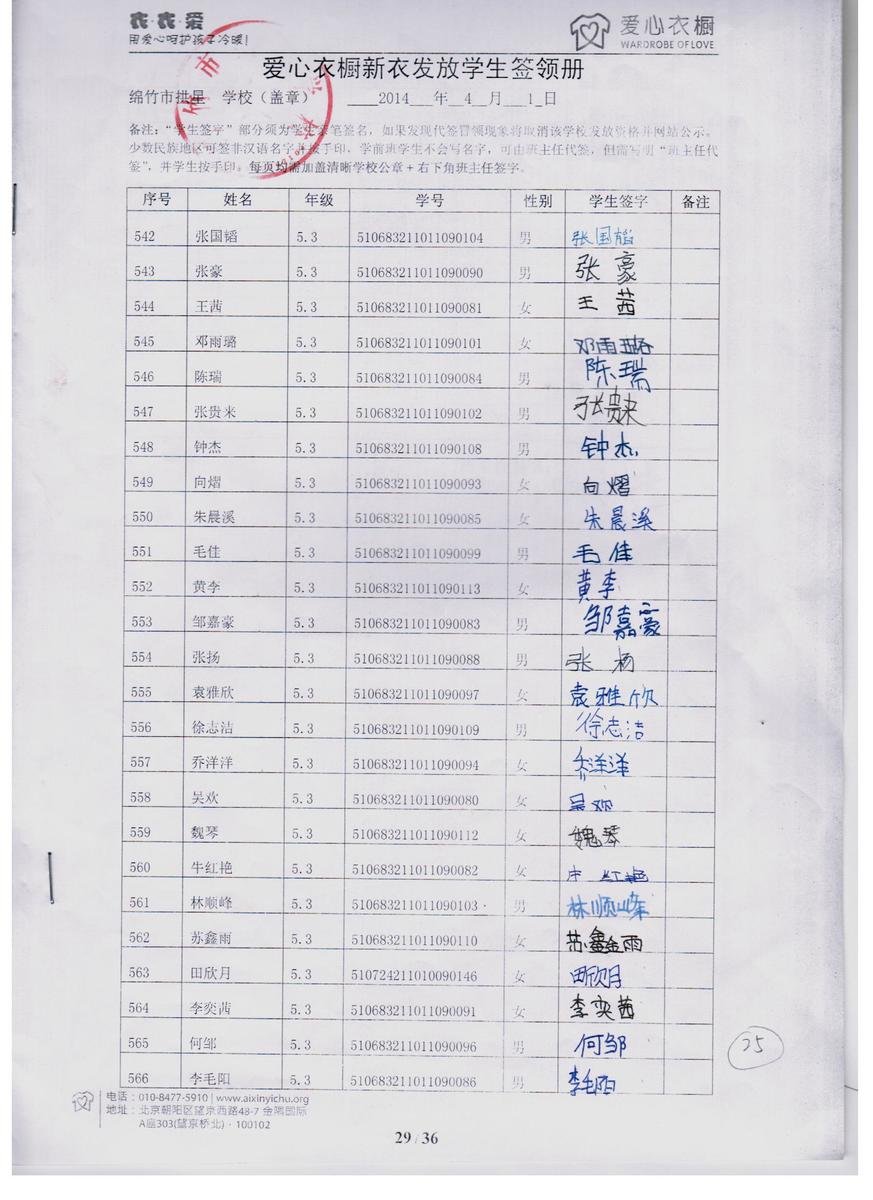 衣·衣·爱
用爱心呵护孩子冷暖!
爱心衣橱
WARDROBE OF LOVE
爱心衣橱新衣发放学生签领册
绵竹市拱星 学校(盖章) 2014 年 4 月 1 日
备注:“学生签字”部分须为学生亲笔签名,如果发现代签冒领现象将取消该学校发放资格并网站公示。
少数民族地区可签非汉语名字并按手印,学前班学生不会写名字,可由班主任代签,但需写明“班主任代
签”,并学生按手印。每页均需加盖清晰学校公章+右下角班主任签字。
序号 姓名 年级 学号 性别 学生签字 备注
542 张国韬 5.3 510683211011090104 男 张国韬
543 张豪 5.3 510683211011090090 男 张豪
544 王茜 5.3 510683211011090081 女 王茜
545 邓雨璐 5.3 510683211011090101 女 邓雨璐
546 陈瑞 5.3 510683211011090084 男 陈瑞
547 张贵来 5.3 510683211011090102 男 张贵来
548 钟杰 5.3 510683211011090108 男 钟杰
549 向熠 5.3 510683211011090093 女 向熠
550 朱晨溪 5.3 510683211011090085 女 朱晨溪
551 毛佳 5.3 510683211011090099 男 毛佳
552 黄李 5.3 510683211011090113 女 黄李
553 邹嘉豪 5.3 510683211011090083 男 邹嘉豪
554 张扬 5.3 510683211011090088 男 张杨
555 袁雅欣 5.3 510683211011090097 女 袁雅欣
556 徐志洁 5.3 510683211011090109 男 徐志洁
557 乔洋洋 5.3 510683211011090094 女 乔洋洋
558 吴欢 5.3 510683211011090080 女 吴欢
559 魏琴 5.3 510683211011090112 女 魏琴
560 牛红艳 5.3 510683211011090082 女 牛红艳
561 林顺峰 5.3 510683211011090103 男 林顺峰
562 苏鑫雨 5.3 510683211011090110 女 苏鑫雨
563 田欣月 5.3 510724211010090146 女 田欣月
564 李奕茜 5.3 510683211011090091 女 李奕茜
565 何邹 5.3 510683211011090096 男 何邹
566 李毛阳 5.3 510683211011090086 男 李毛阳
25
电话:010-8477-5910 | www.aixinyichu.org
地址:北京朝阳区望京西路48-7 金隅国际
A座303(望京桥北)·100102
29 / 36